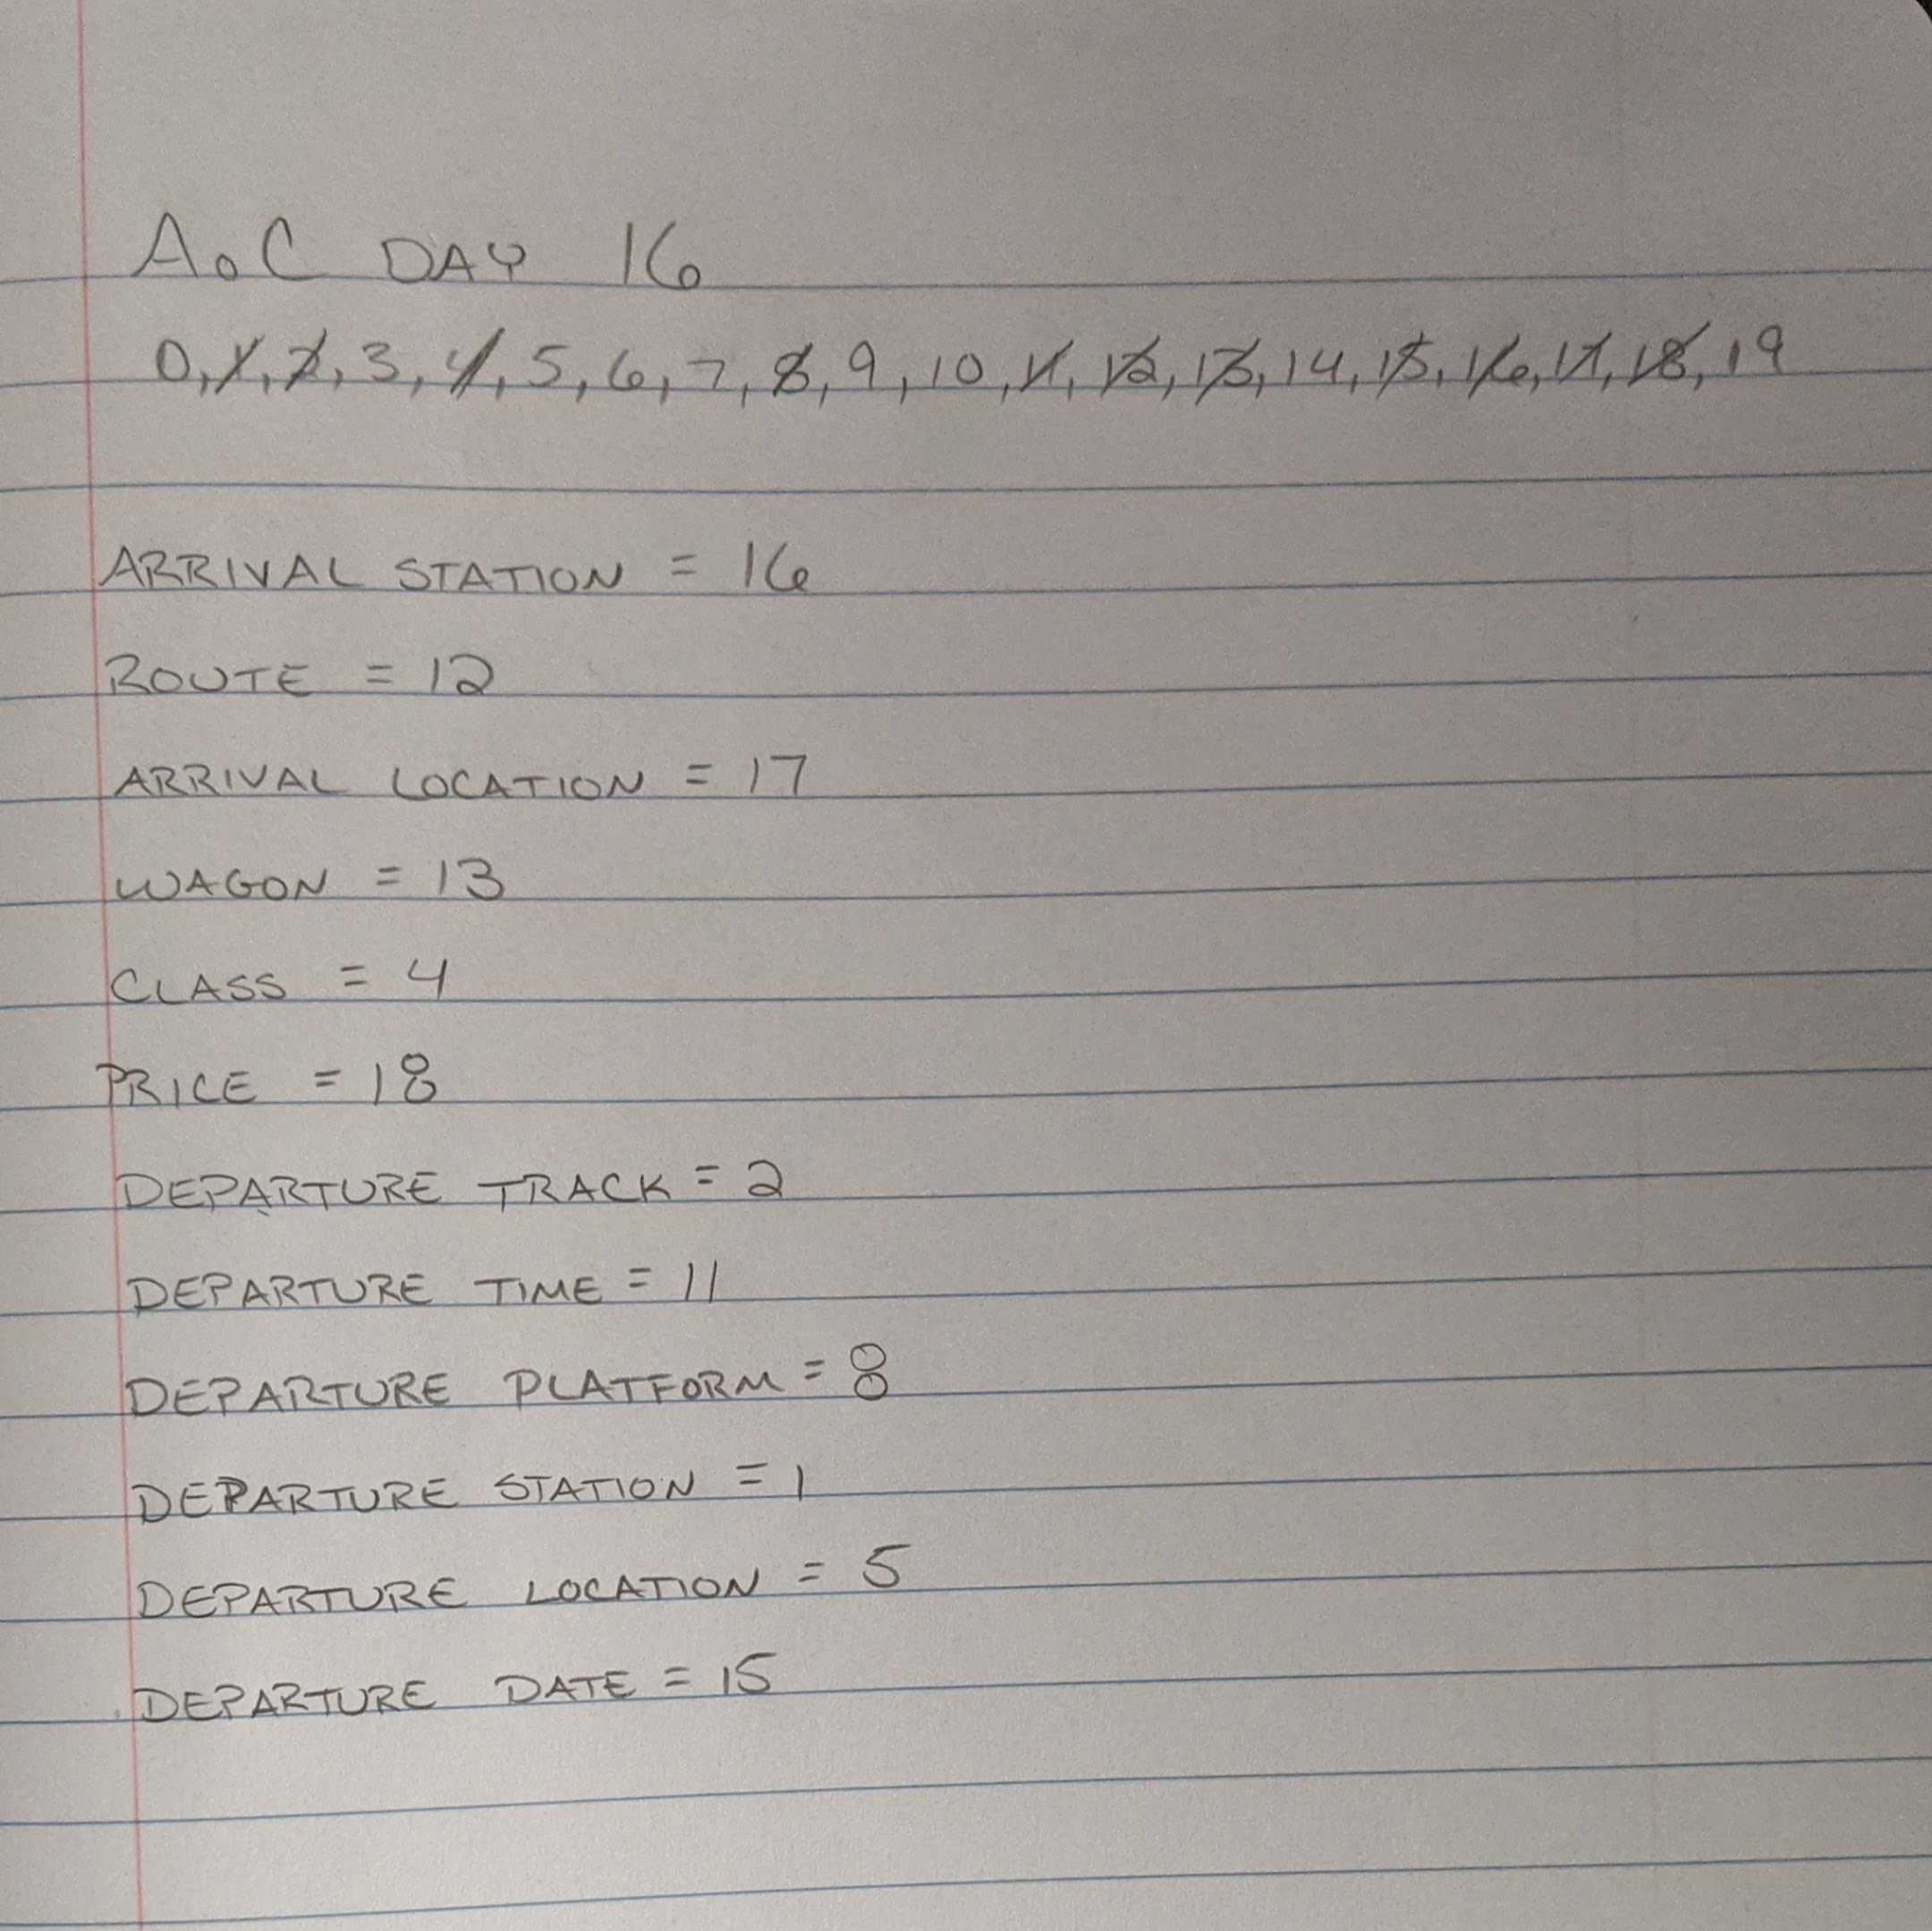 AoC DAY 16
0, 1, 2, 3, 4, 5, 6, 7, 8, 9, 10, 11, 12, 13, 14, 15, 16, 17, 18, 19
ARRIVAL STATION = 16
ROUTE = 12
ARRIVAL LOCATION = 17
WAGON = 13
CLASS = 4
PRICE = 18
DEPARTURE TRACK = 2
DEPARTURE TIME = 11
DEPARTURE PLATFORM = 8
DEPARTURE STATION = 1
DEPARTURE LOCATION = 5
DEPARTURE DATE = 15